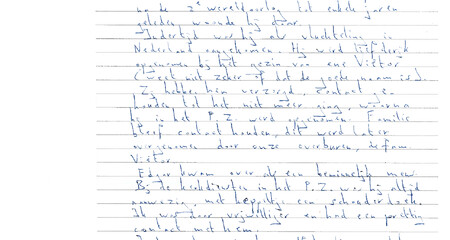 na de 2e wereldoorlog tot enkele jaren
geleden, woonde hij daar.
Indertijd was hij als vluchteling in
Nederland opgenomen. Hij werd liefderijk
opgenomen bij het gezin van ene Viëtor
(weet niet zeker of dat de goede naam is).
Zij hebben hem verzorgd, contact ge-
houden tot het niet meer ging, waarna
hij in het P.Z. werd opgenomen. Familie
bleef contact houden, dit werd later
overgenomen door onze overburen, de fam.
Viëtor.
Edgar kwam over als een beminnelijk mens.
Bij de kerkdiensten in het P.Z. was hij altijd
aanwezig, met heppitge een schouderdoek.
Ik was daar vrijwilliger en had een prettig
contact met hem.